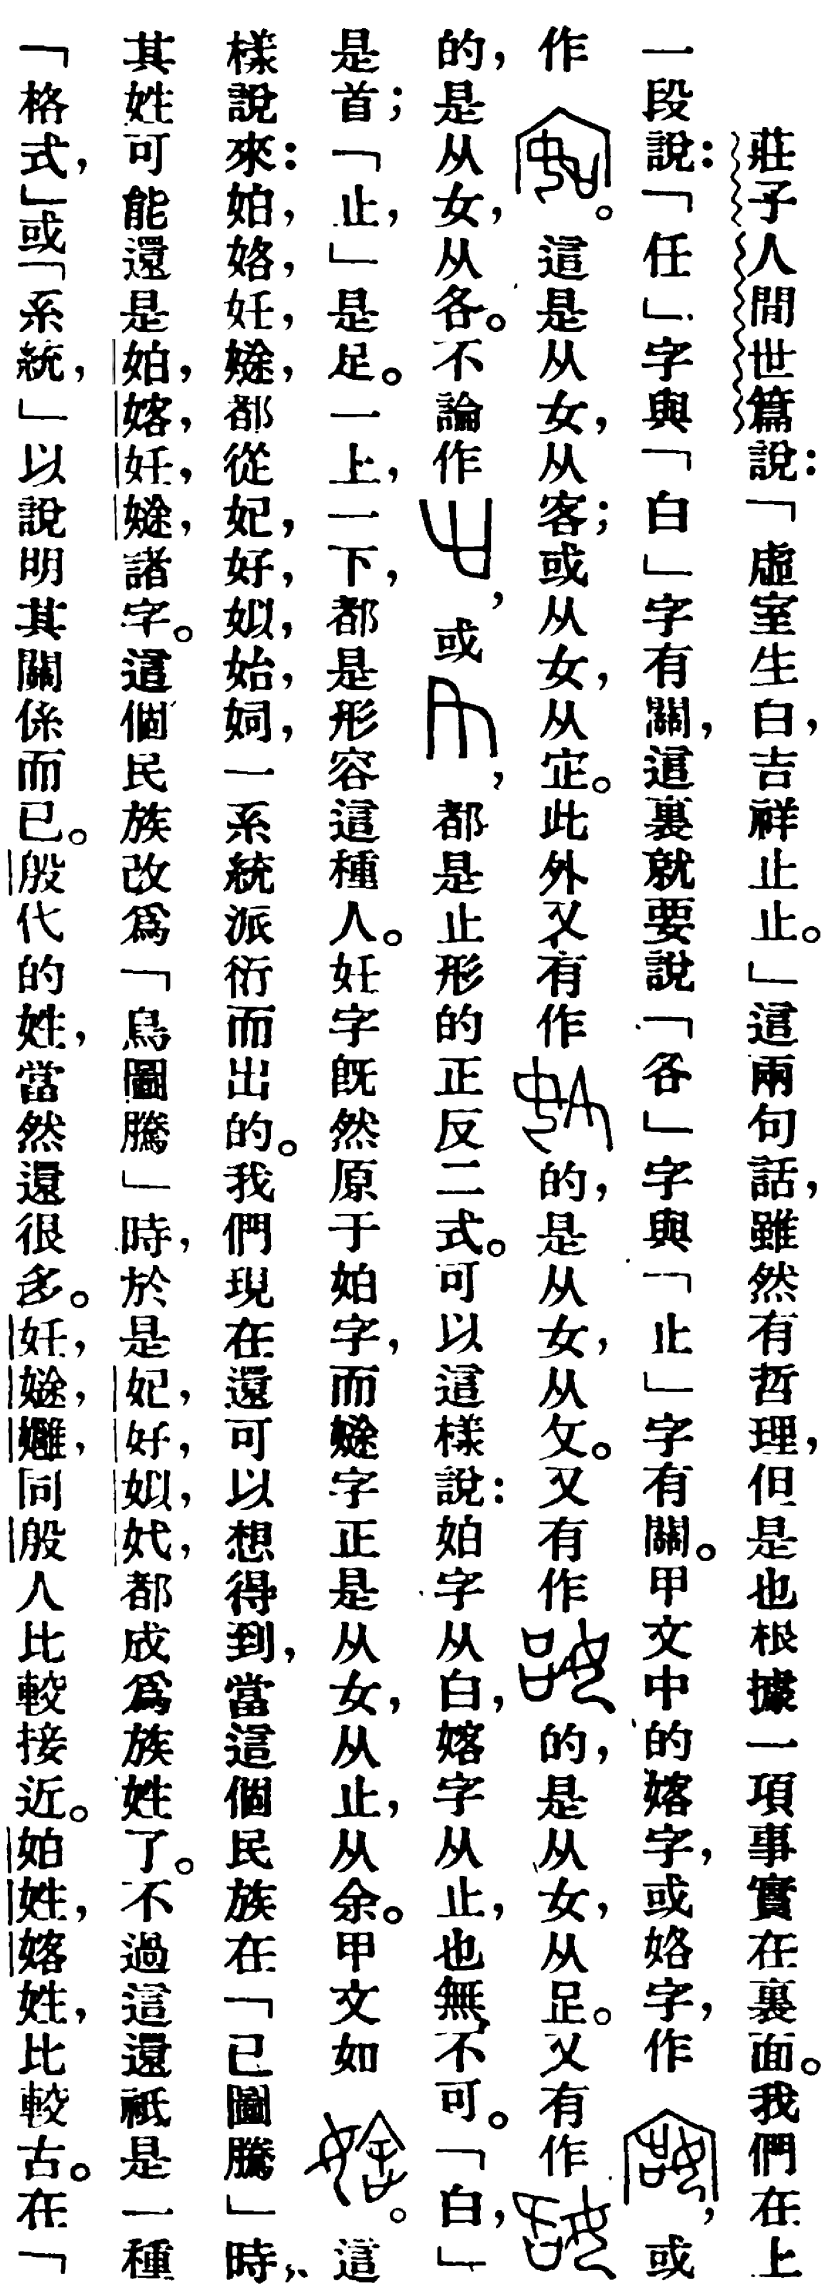 莊子人間世篇說：「虛室生白，吉祥止止。」這兩句話，雖然有哲理，但是也根據一項事實在裏面。我們在上
一段說：「任」字與「白」字有關，這裏就要說「各」字與「止」字有關。甲文中的嫆字，或姳字，作，或
作。這是从女，从客；或从女，从㝎。此外又有作的，是从女，从夂。又有作的，是从女，从足。又有作
的，是从女，从各。不論作，或，都是止形的正反二式。可以這樣說：妱字从白，字从止，也無不可。「白，」
是首；「止，」是足。一上，一下，都是形容這種人。妊字旣然原于字，而字正是从女，从止，从余。甲文如。這
樣說來：，，妊，，都從妃，好，姒，始，姛，一系統派衍而出的。我們現在還可以想得到，當這個民族在「巳圖騰」時，
其姓可能還是，，妊，，諸字。這個民族改爲「鳥圖騰」時，於是妃，好，姒，㚤，都成爲族姓了。不過這還祇是一種
「格式，」或「系統，」以說明其關係而已。殷代的姓，當然還很多。妊，，，同殷人比較接近。姓，姓，比較古。在「